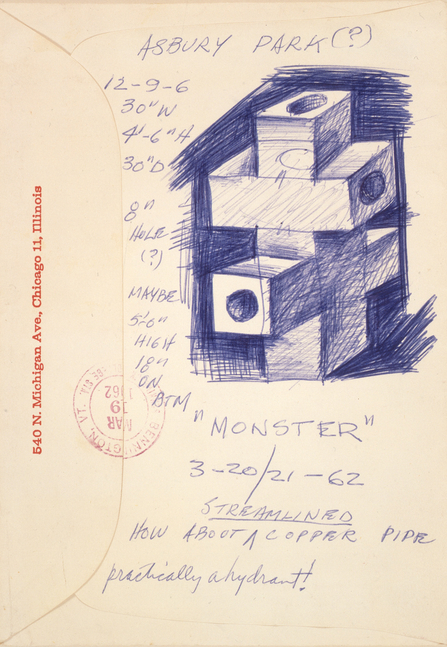 ASBURY PARK (?)
12-9-6
30" W
4'-6" H
30" D
8"
HOLE
(?)
MAYBE
5'-0"
HIGH
18"
ON
BTM
540 N. Michigan Ave., Chicago 11, Illinois
BENNINGTON, VT.
MAR
19
1962
"MONSTER"
3-20/21-62
STREAMLINED
HOW ABOUT ∧ COPPER PIPE
practically a hydrant!